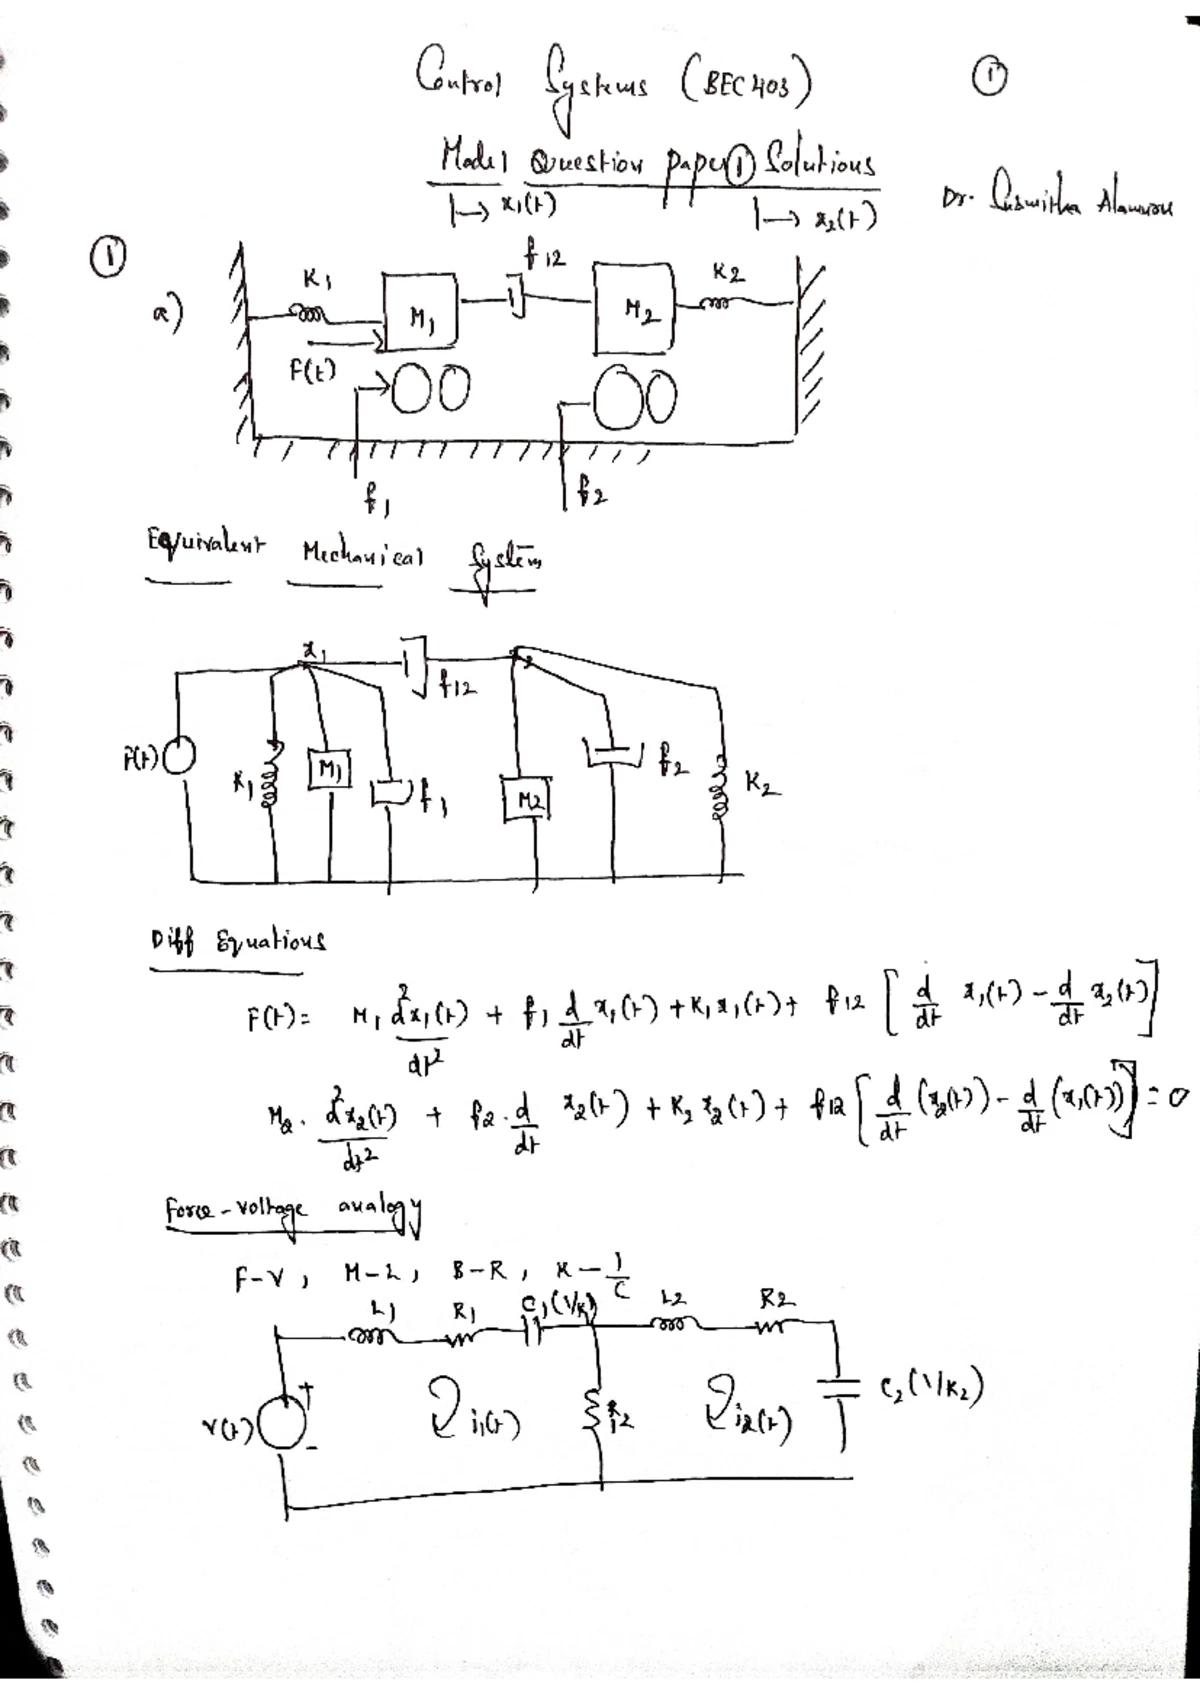 Control Systems (BEC403)
①
Model Question paper ① Solutions
Dr. Alamuru
|→ x₁(t)
|→ x₂(t)
①
a)
K₁
M₁
f₁₂
M₂
K₂
F(t)
f₁
f₂
Equivalent Mechanical System
x₁
f₁₂
F(t)
K₁
M₁
f₁
M₂
f₂
K₂
Diff Equations
F(t) = M₁ d²x₁(t)/dt² + f₁ d/dt x₁(t) + K₁x₁(t) + f₁₂ [d/dt x₁(t) - d/dt x₂(t)]
M₂ . d²x₂(t)/dt² + f₂ . d/dt x₂(t) + K₂ x₂(t) + f₁₂ [d/dt (x₂(t)) - d/dt (x₁(t))] = 0
Force-voltage analogy
F-V, M-L, B-R, K-1/C
L₁ R₁ C₁(1/K₁) L₂ R₂
V(t)
+
-
i₁(t)
R₁₂
i₂(t)
C₂(1/K₂)